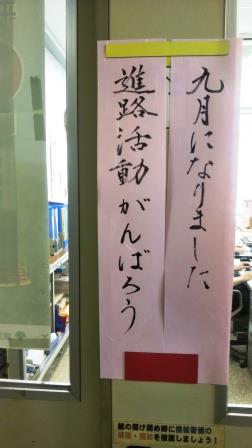 九月になりました
進路活動がんばろう
鍵の開け閉め時に機械警備の
確認を確認しましょう！